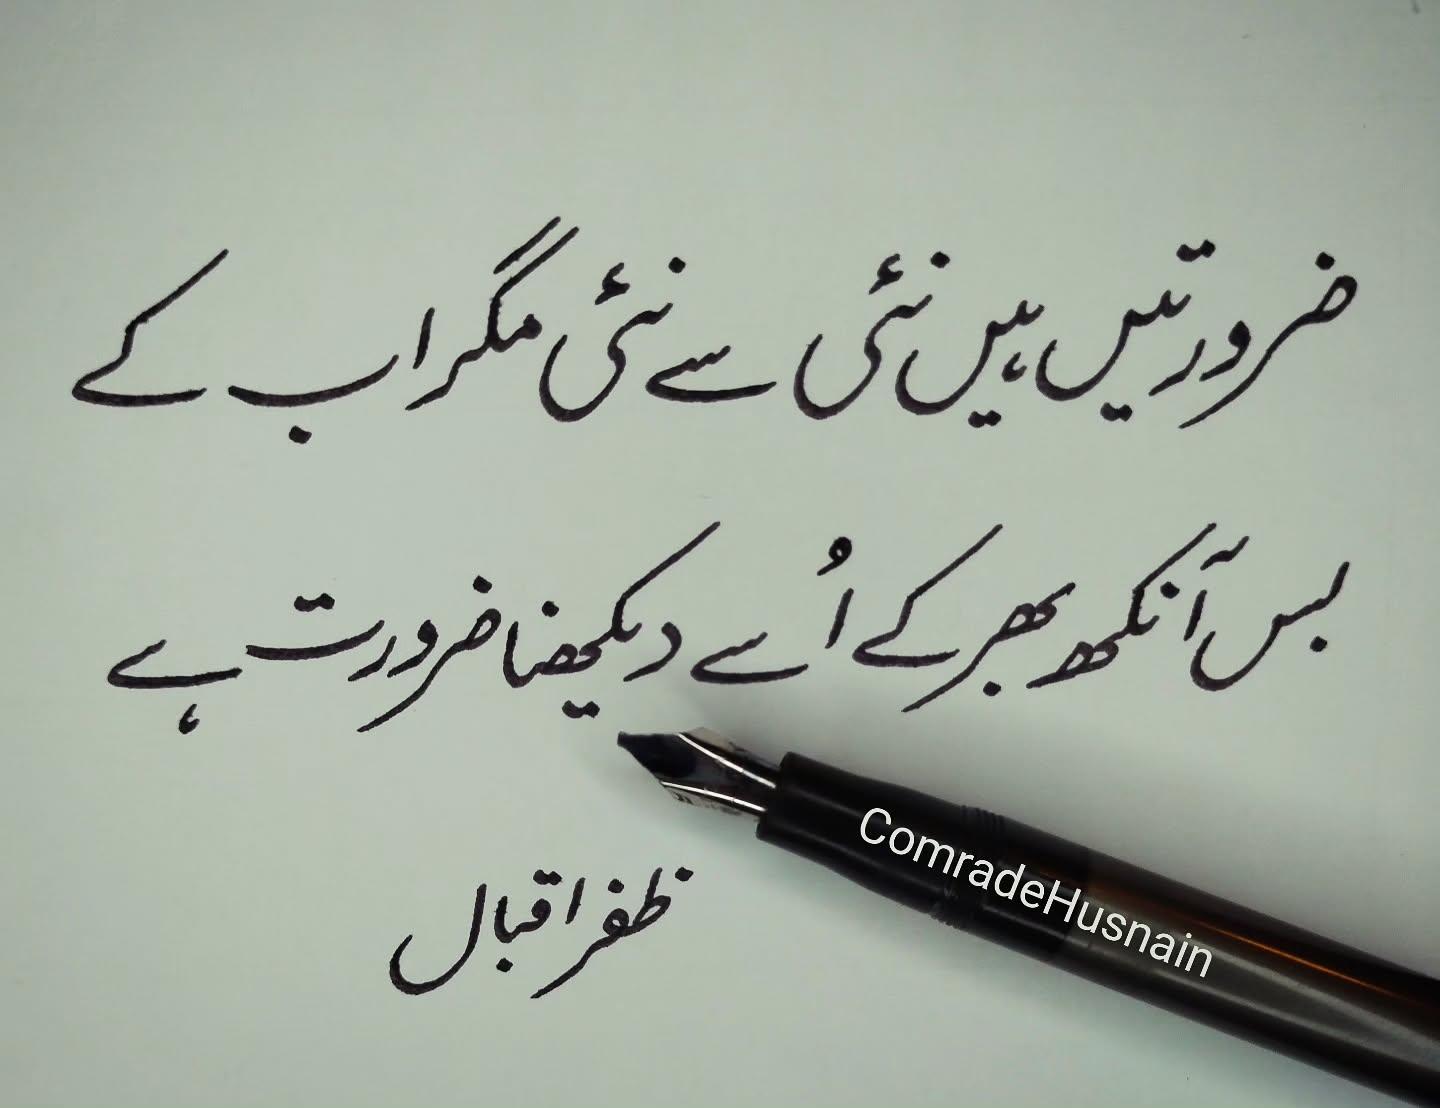 ضرورتیں ہیں نئی سے نئی مگر اب کے
بس آنکھ بھر کے اُسے دیکھنا ضرورت ہے
ظفر اقبال
ComradeHusnain